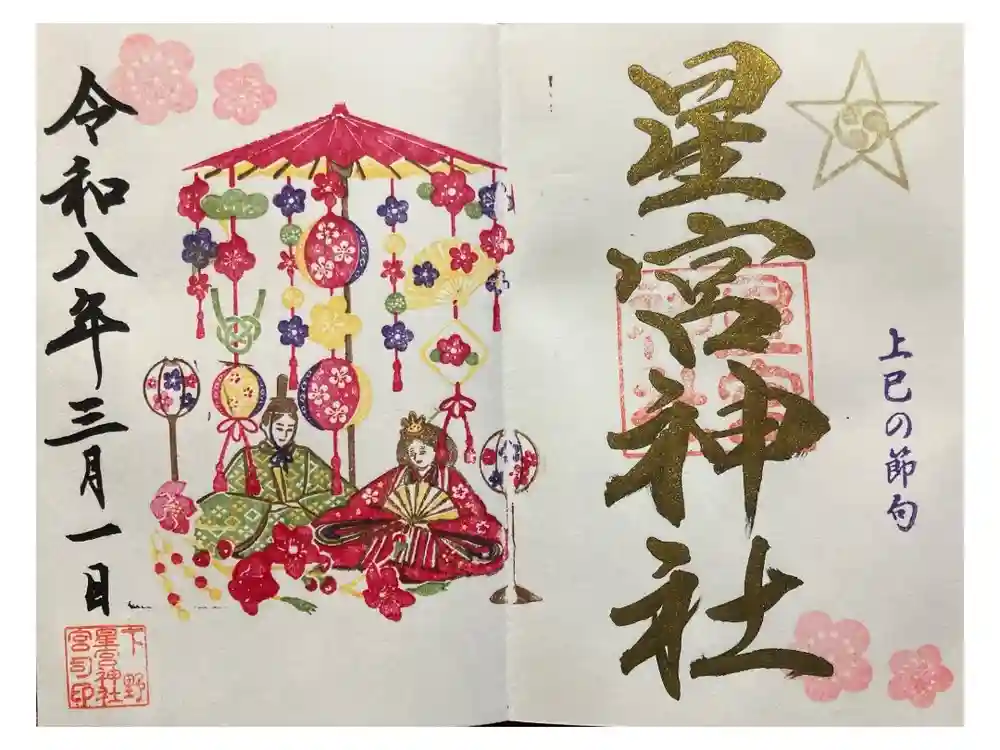 上巳の節句
星宮神社
令和八年三月一日
下野
星宮神社
宮司印